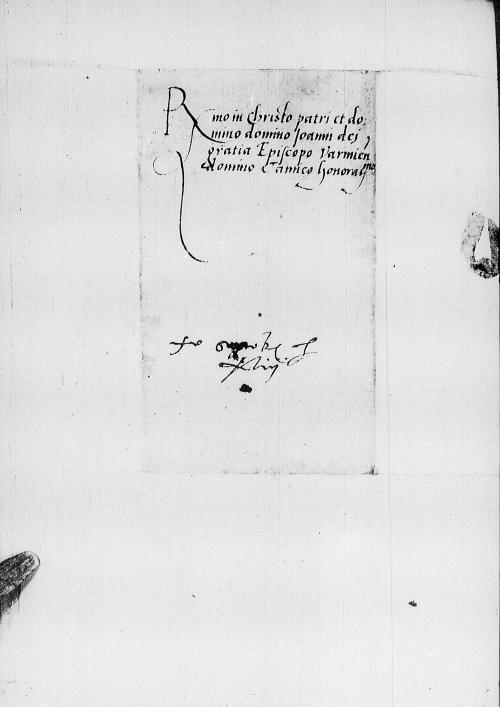 Rmo in Christo patri et do-
mino domino Joanni dei
gratia Episcopo Varmien
domino et amico honoraᵐᵒ